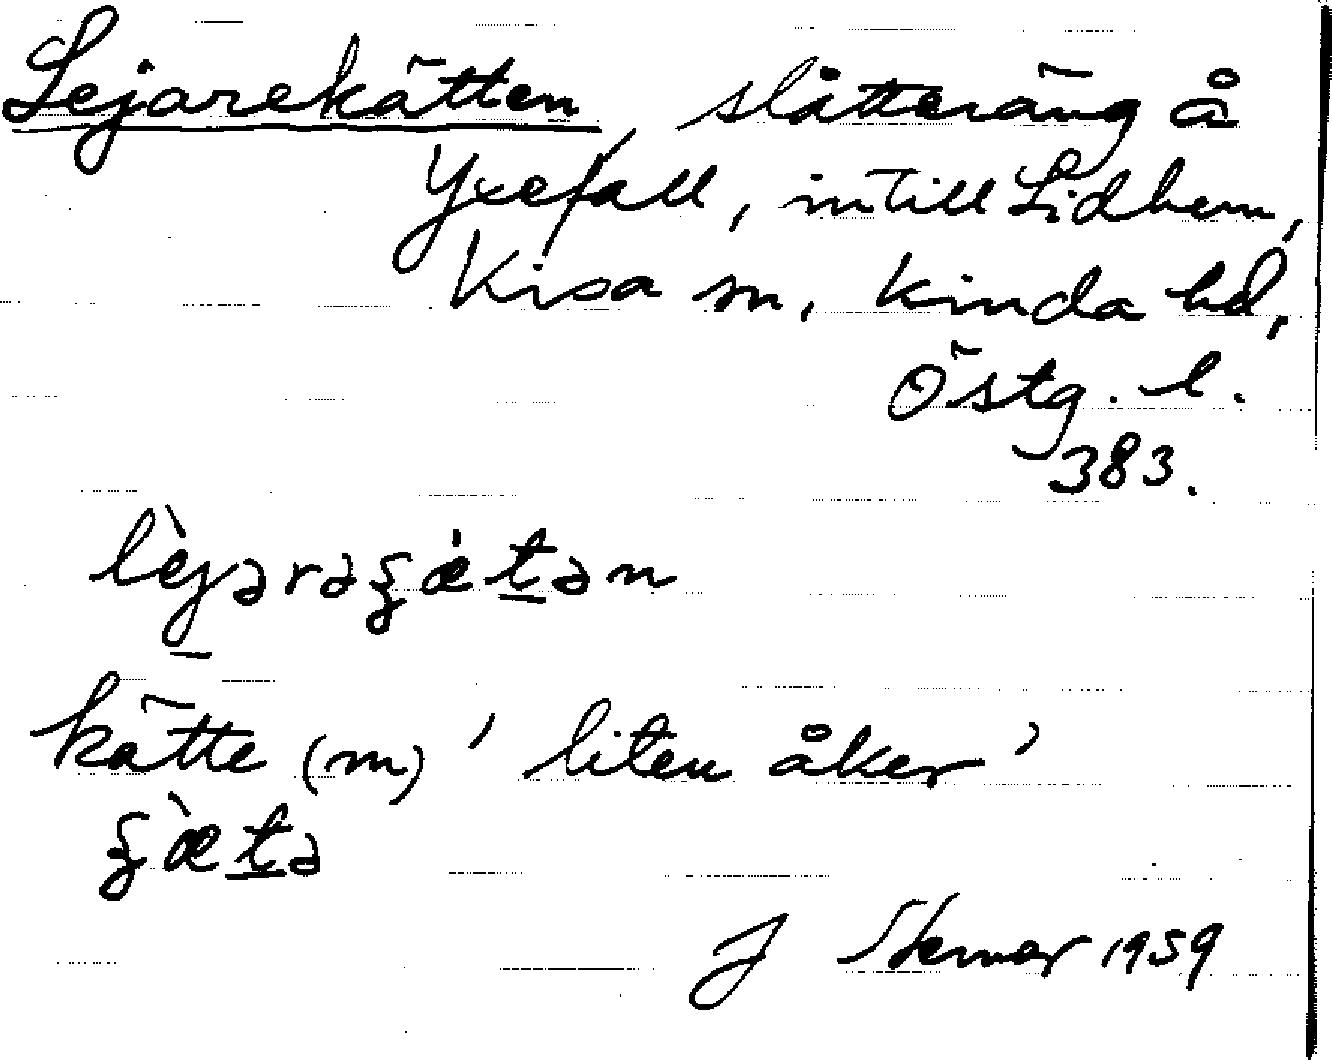 Lejarekätten, slåtteräng å
Yxefall, intill Lidhem,
Kisa sn, Kinda hd,
Östg. l.
383.
kätte (m) 'liten åker'
J 1959